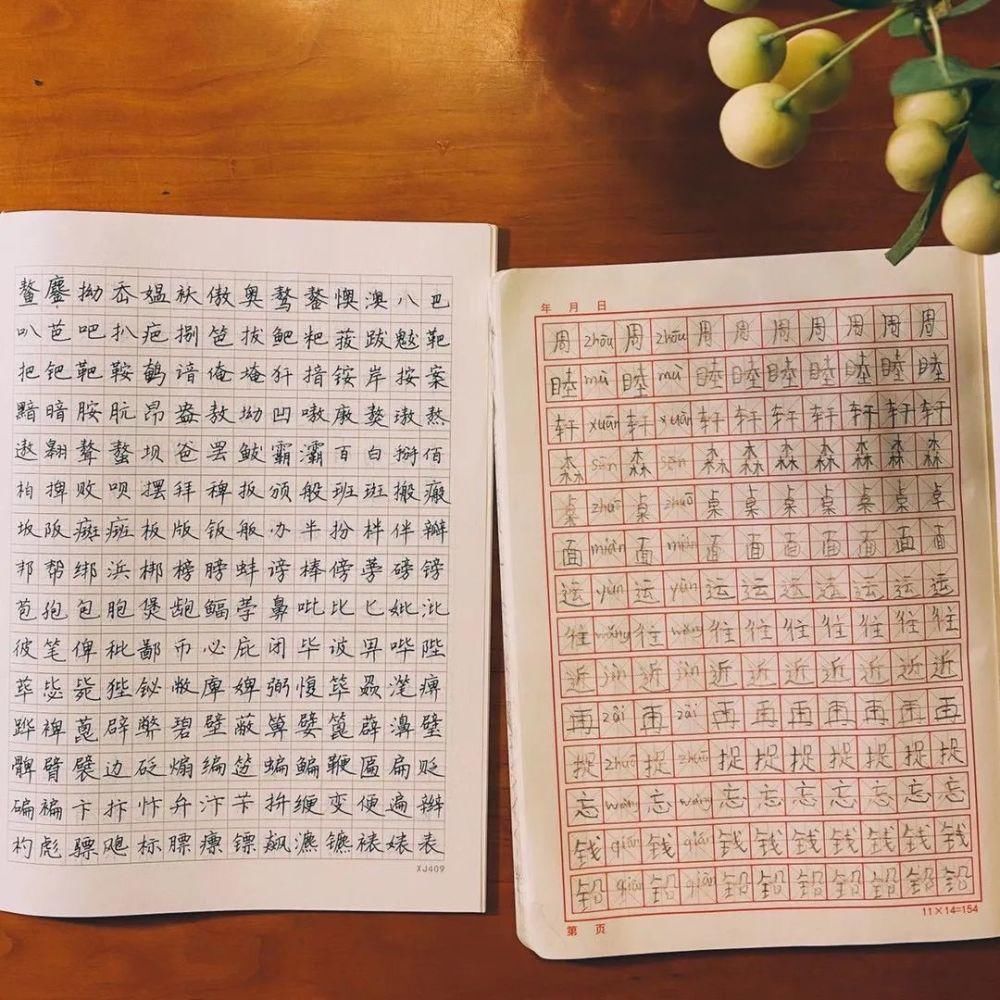 鳌鏖拗岙媪袄傲奥骜鏊懊澳八巴
叭芭吧扒疤捌笆拔鲃粑菝跋魃靶
把钯耙鞍鹌谙俺埯犴揞铵岸按案
黯暗胺肮昂盎敖坳凹嗷廒獒璈熬
遨翱聱螯坝爸罢鲅霸灞百白掰佰
柏捭败呗摆拜稗扳颁般班斑搬瘢
坂阪癍瘢板版钣舨办半扮柈伴瓣
邦帮绑浜梆榜膀蚌谤棒傍蒡磅镑
苞孢包胞煲龅鲾荸鼻吡比匕妣沘
彼笔俾秕鄙币必庇闭毕诐畀哔陛
荜毖毙狴铋敝庳婢弼愎筚赑滗痹
跸裨蓖辟弊碧壁蔽箅嬖篦薜濞璧
髀臂襞边砭煸编笾蝙鳊鞭匾扁贬
碥褊卞抃忭弁汴苄拚缠变便遍辩
杓彪骠飑标膘瘭镖飙瀌镳裱婊表
XJ409
年 月 日
周 zhōu 周 zhōu 周 周 周 周 周 周 周
睦 mù 睦 mù 睦 睦 睦 睦 睦 睦 睦
轩 xuān 轩 xuān 轩 轩 轩 轩 轩 轩 轩
森 sēn 森 sēn 森 森 森 森 森 森 森
桌 zhuō 桌 zhuō 桌 桌 桌 桌 桌 桌 桌
面 miàn 面 miàn 面 面 面 面 面 面 面
运 yùn 运 yùn 运 运 运 运 运 运 运
往 wǎng 往 wǎng 往 往 往 往 往 往 往
近 jìn 近 jìn 近 近 近 近 近 近 近
再 zài 再 zài 再 再 再 再 再 再 再
捉 zhuō 捉 zhuō 捉 捉 捉 捉 捉 捉 捉
忘 wàng 忘 wàng 忘 忘 忘 忘 忘 忘 忘
钱 qián 钱 qián 钱 钱 钱 钱 钱 钱 钱
铅 qiān 铅 qiān 铅 铅 铅 铅 铅 铅 铅
第 页
11×14=154